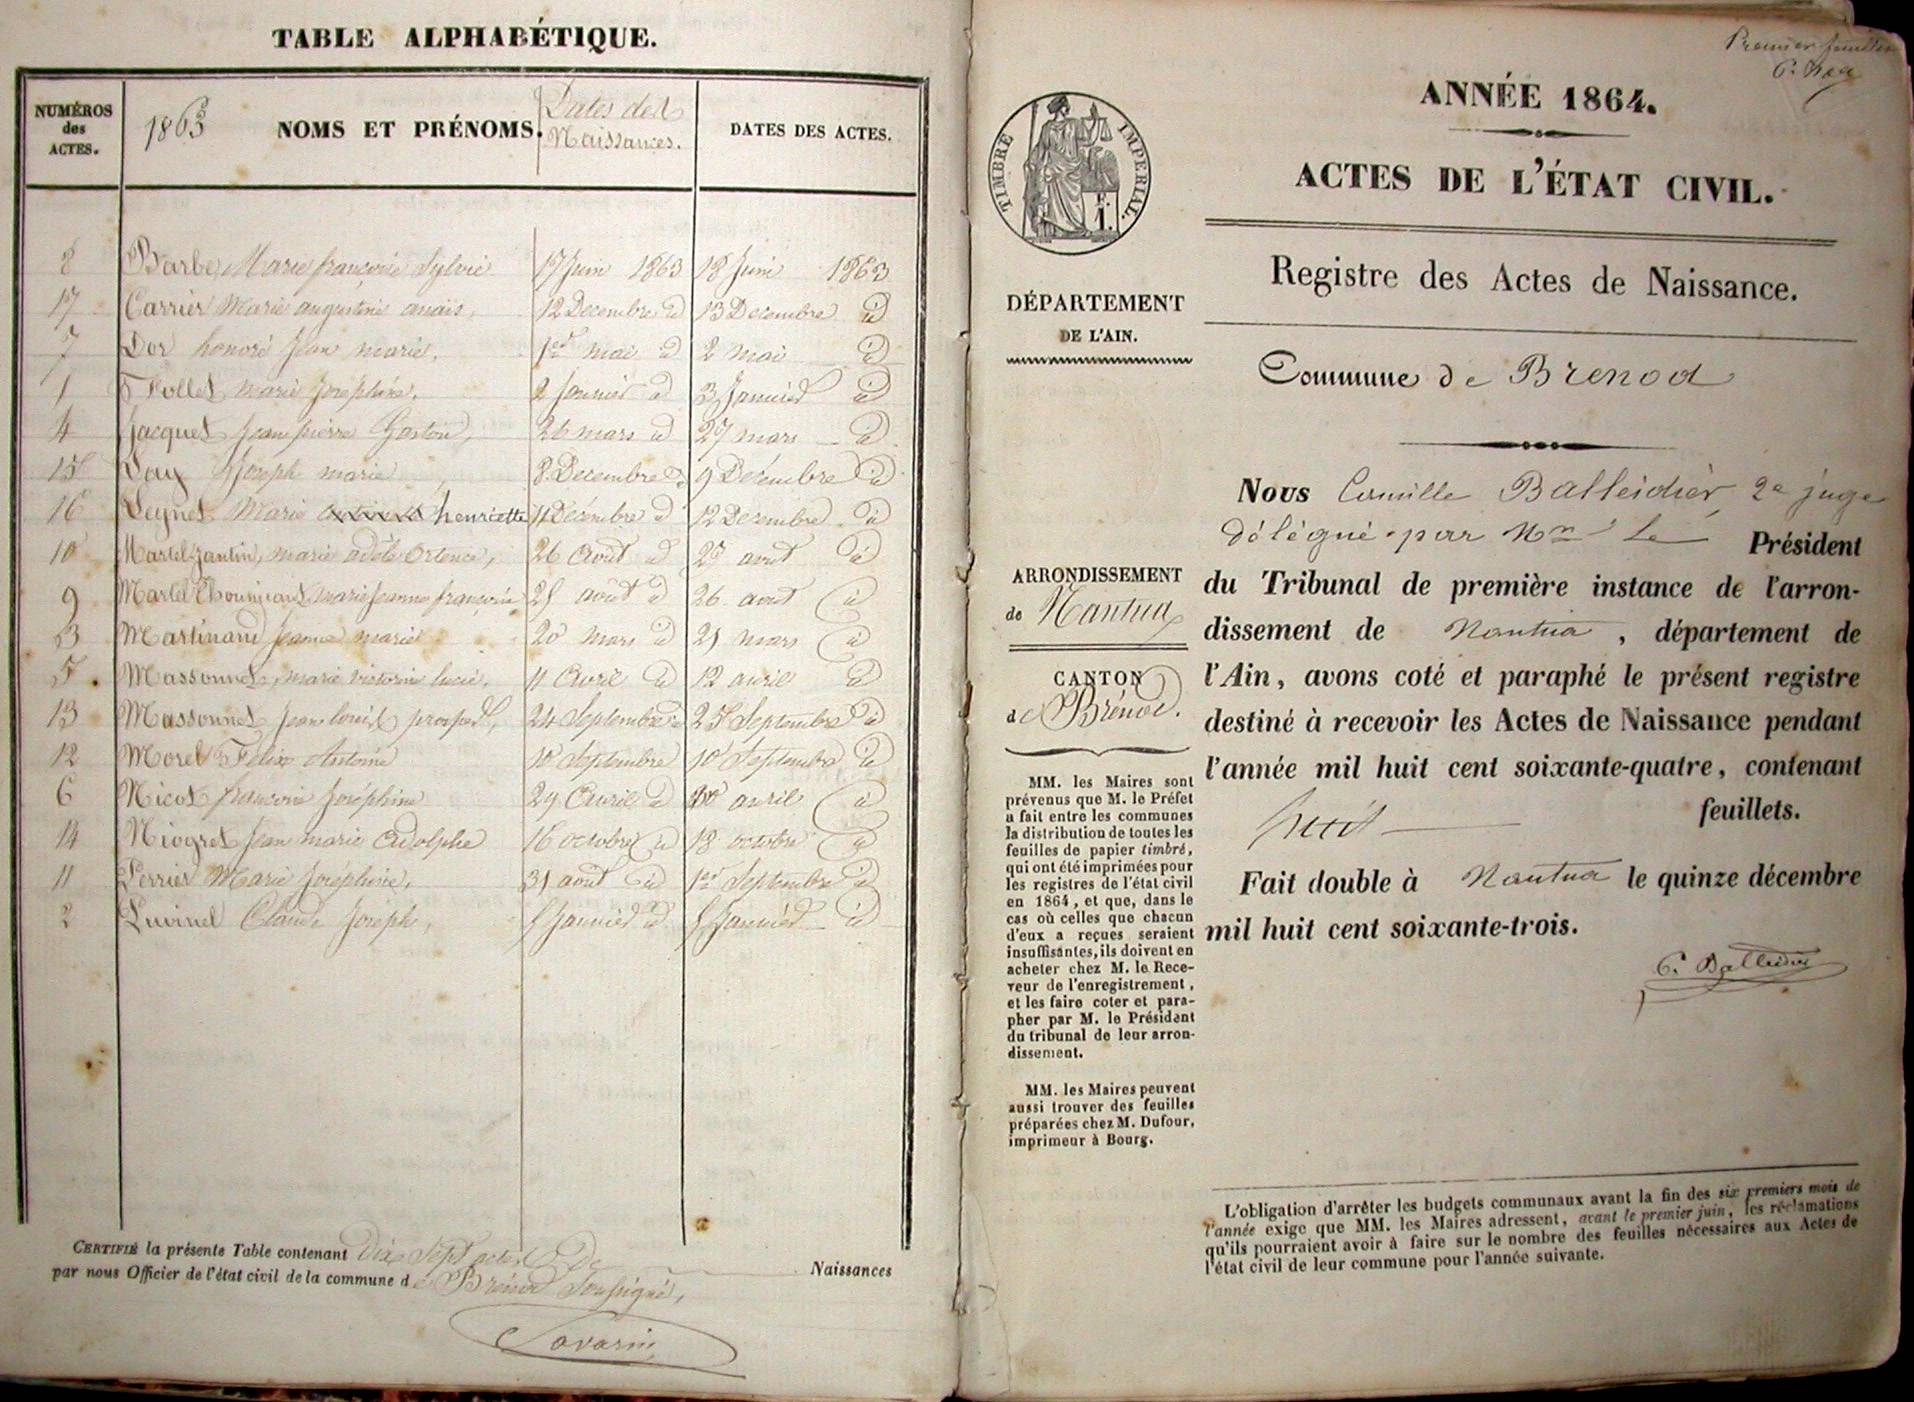 TABLE ALPHABÉTIQUE.
NUMÉROS
des
ACTES.
1863
NOMS ET PRÉNOMS.
Dates des
Naissances.
DATES DES ACTES.
8 Barbe, Marie françoise Sylvie 17 Juin 1863 18 Juin 1863
17 Carrier Marie augustine anaïs, 12 Decembre id 13 Decembre id
7 Dor honoré Jean marie, 1er mai id 2 mai id
1 Follet, marie Joséphine, 2 Janvier id 3 Janvier id
4 Jacquet Jean pierre Gaston, 26 mars id 27 mars id
15 Lay Joseph marie, 8 Decembre id 9 Decembre id
16 Marie henriette 11 Décembre id 12 Decembre id
10 Martel Jantin, marie adèle Ortence, 26 Août id août id
9 Martel marie Jeanne françoise 25 août id 26 août id
3 Martinand Jeanne marie 20 mars id 21 mars id
5 Massonnet, marie victorine lucie, 11 Avril id 12 avril id
13 Massonnet Jean louis prosper, 24 Septembre id 25 Septembre id
12 Morel Félix Antoine 10 Septembre 10 Septembre id
6 Nicot françoise Joséphine 29 Avril id 30 avril id
14 Niogret Jean marie Adolphe 16 octobre id 18 octobre id
11 Perrier Marie Joséphine, 31 août id 1er Septembre id
2 Claude Joseph, 5 Janvier id 5 Janvier id
CERTIFIÉ la présente Table contenant Dix Sept actes De Naissances
par nous Officier de l'état civil de la commune de Brénod Soussigné,
Savarin
Premier feuillet
ANNÉE 1864.
ACTES DE L'ÉTAT CIVIL.
TIMBRE IMPERIAL.
F.
1.
Registre des Actes de Naissance.
DÉPARTEMENT
DE L'AIN.
Commune de Brenod
ARRONDISSEMENT
de Nantua
CANTON
de Brénod.
MM. les Maires sont
prévenus que M. le Préfet
a fait entre les communes
la distribution de toutes les
feuilles de papier timbré,
qui ont été imprimées pour
les registres de l'état civil
en 1864, et que, dans le
cas où celles que chacun
d'eux a reçues seraient
insuffisantes, ils doivent en
acheter chez M. le Rece-
veur de l'enregistrement,
et les faire coter et para-
pher par M. le Président
du tribunal de leur arron-
dissement.
MM. les Maires peuvent
aussi trouver des feuilles
préparées chez M. Dufour,
imprimeur à Bourg.
Nous Camille Balleidier, 2e juge
délégué par Mr Le Président
du Tribunal de première instance de l'arron-
dissement de Nantua, département de
l'Ain, avons coté et paraphé le présent registre
destiné à recevoir les Actes de Naissance pendant
l'année mil huit cent soixante-quatre, contenant
huit feuillets.
Fait double à Nantua le quinze décembre
mil huit cent soixante-trois.
C. Balleidier
L'obligation d'arrêter les budgets communaux avant la fin des six premiers mois de
l'année exige que MM. les Maires adressent, avant le premier juin, les réclamations
qu'ils pourraient avoir à faire sur le nombre des feuilles nécessaires aux Actes de
l'état civil de leur commune pour l'année suivante.